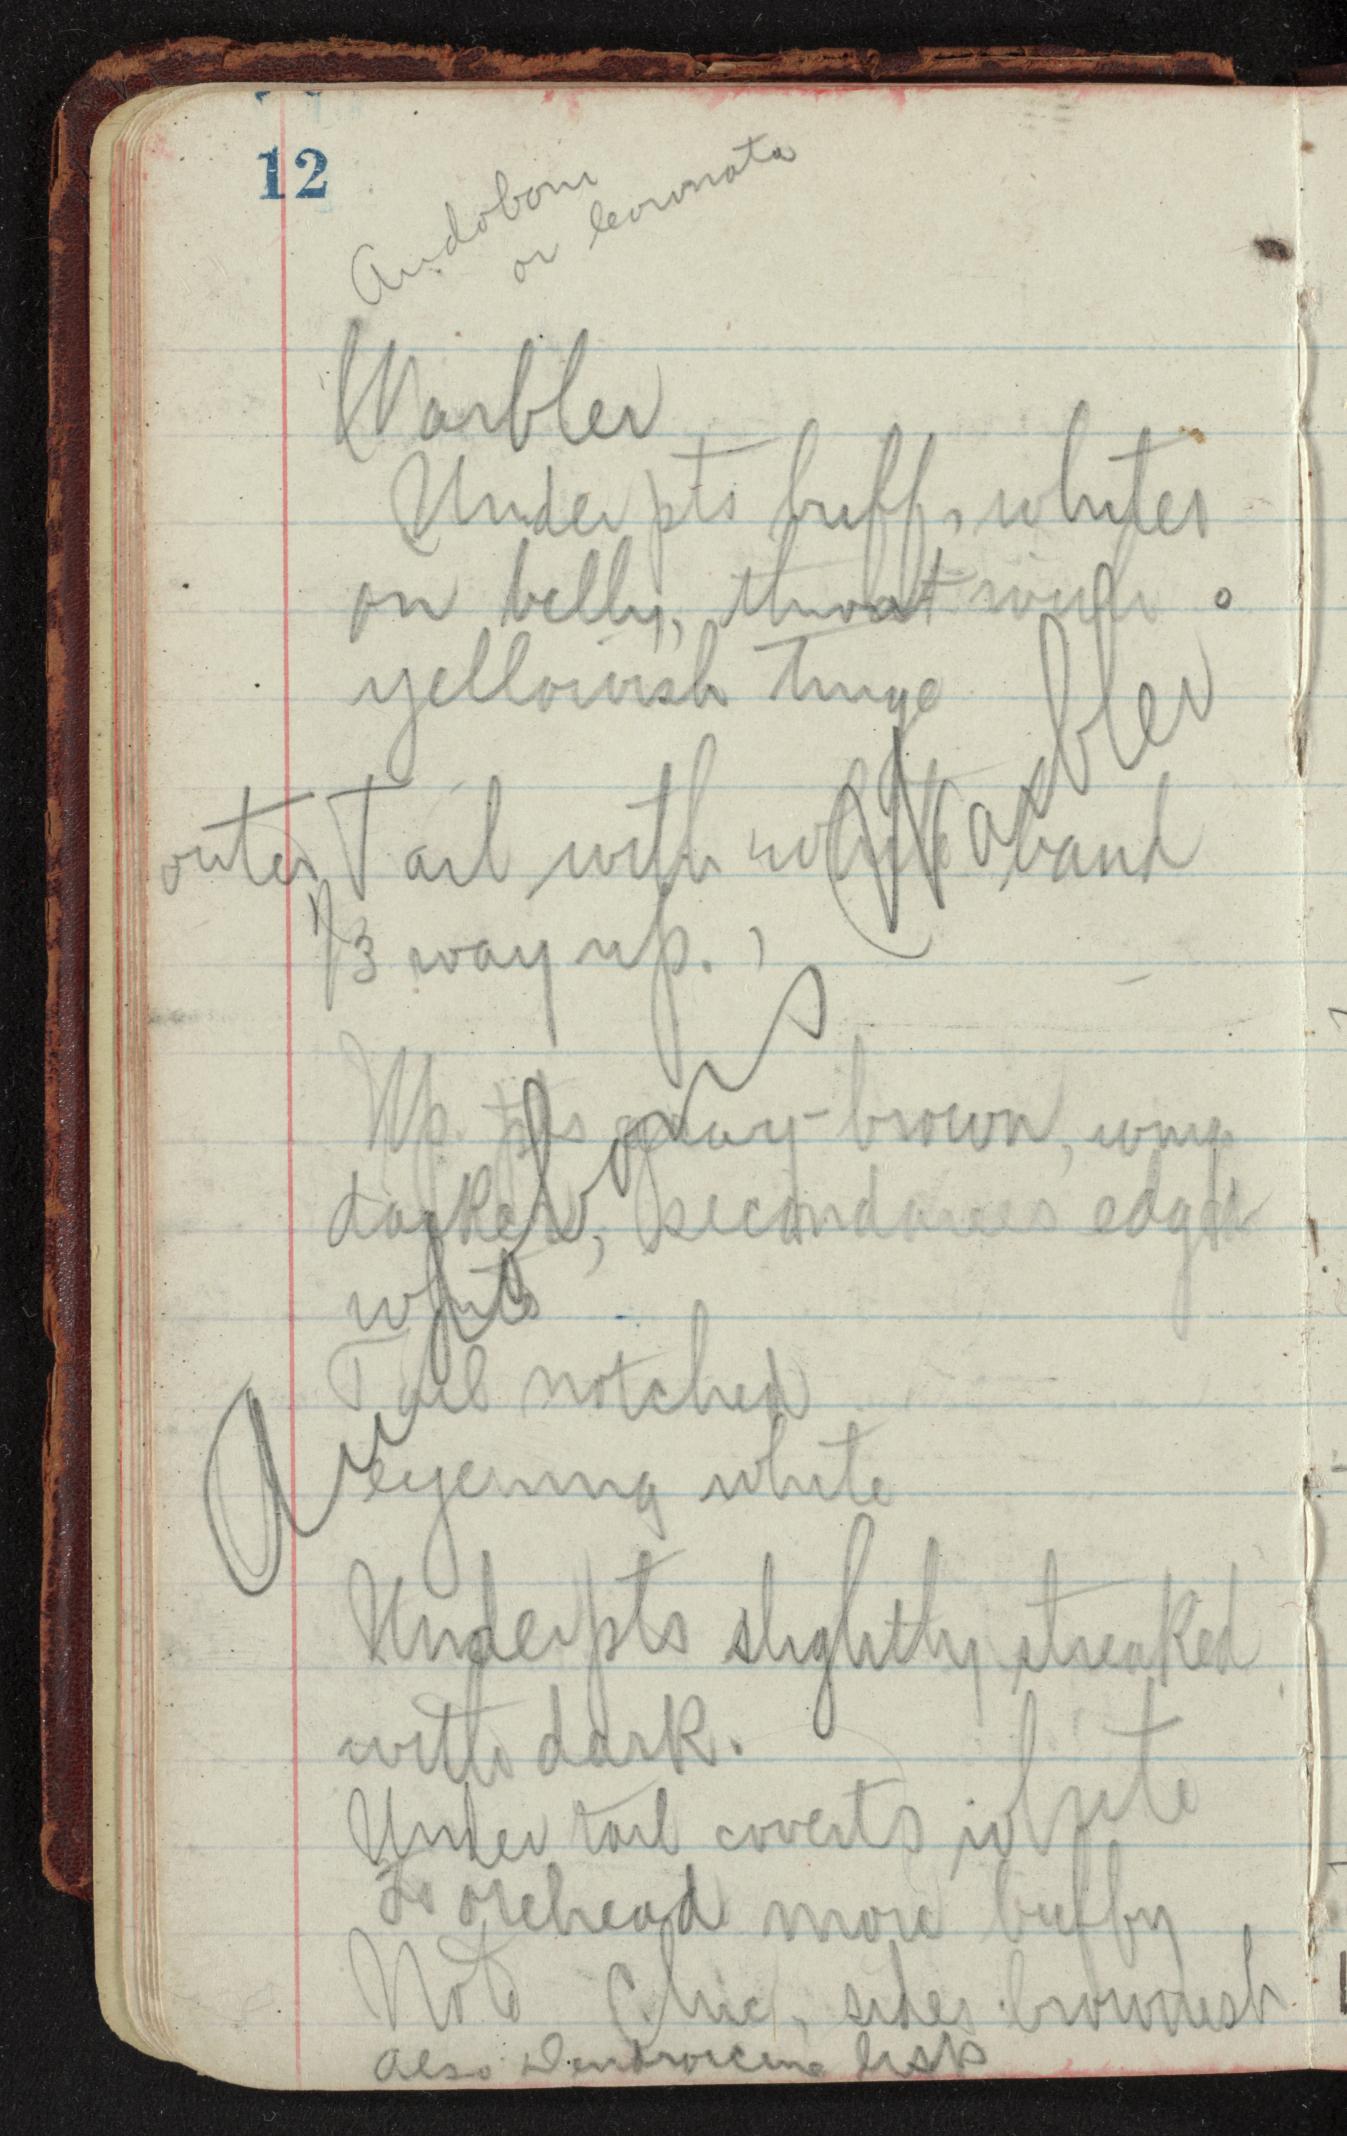 12
Audoboni
or coronata
Warbler
Underpts buff, whites
on belly, throat with
yellowish tinge
outer Tail with white band
1/3 way up.
Up. pts gray-brown, wings
darker, secondaries edged
white
Tail notched
eyering white
Underpts slightly streaked
with dark.
Under tail coverts white
Forehead more buffy
Note Chic, sides brownish
also
Audubons Warbler